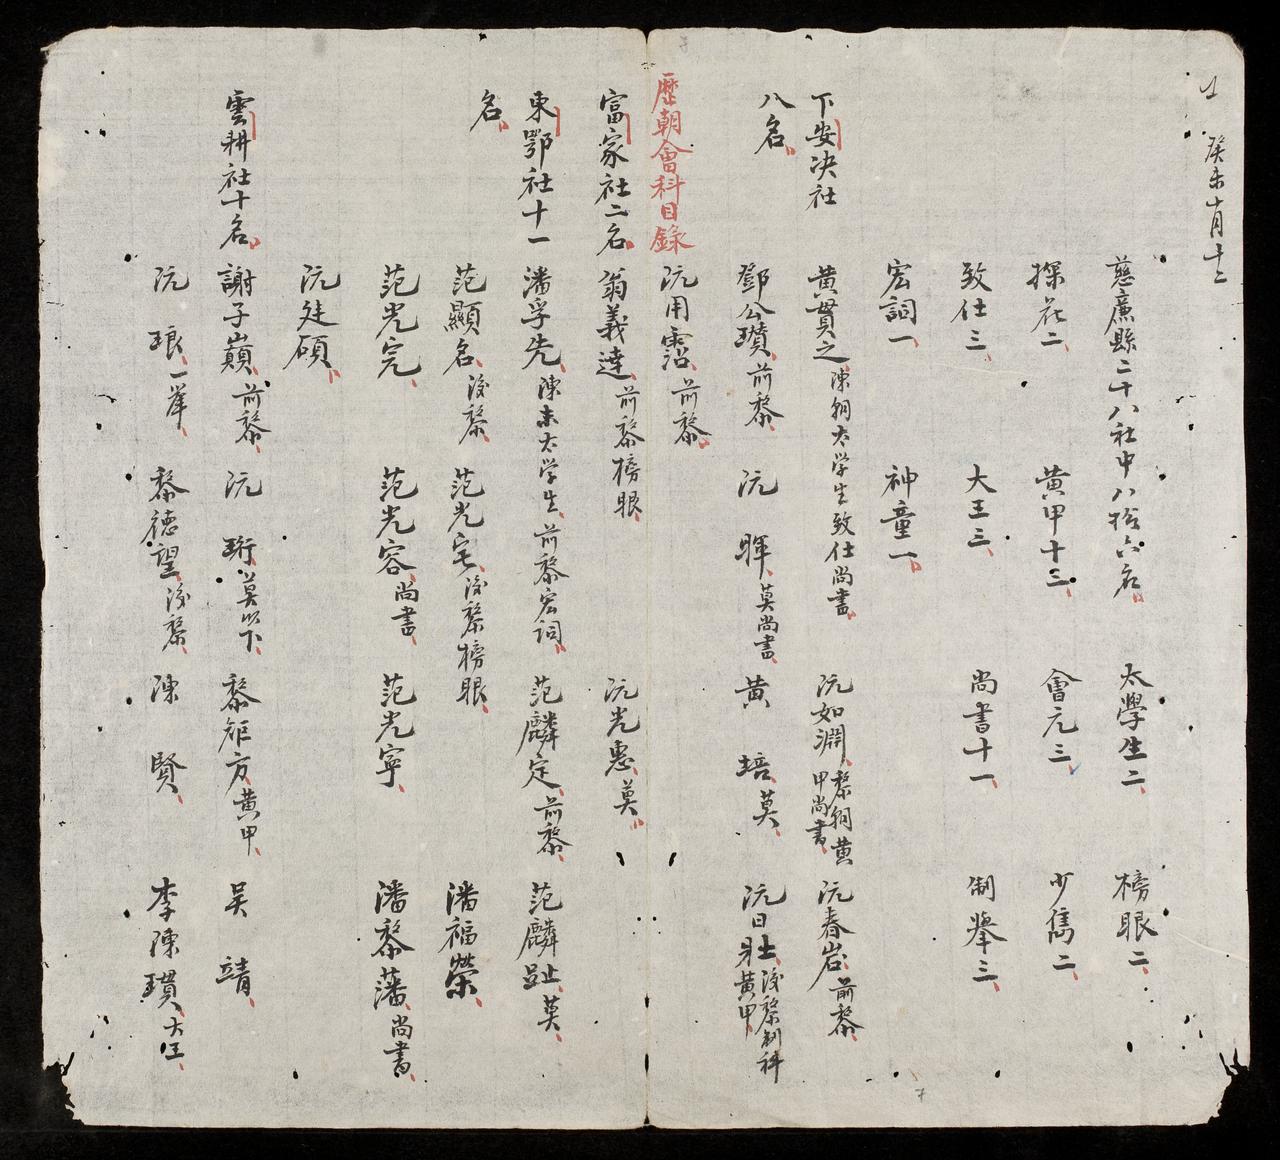 癸未十月十二
慈廉縣二十八社中八拾六名 太學生二 榜眼二
探花二 黃甲十三 會元三 少雋二
致仕三 大王三 尚書十一 制舉三
宏詞一 神童一
下安决社 黃貫之 陳朝太学生致仕尚書 阮如淵 黎朝黃甲尚書 阮春岩 前黎
八名 鄧公瓚 前黎 阮暉 莫尚書 黃培 莫 阮日壯 後黎制科黃甲
歷朝會科目錄
阮用霑 前黎
富家社二名 翁義達 前黎榜眼 阮光惠 莫
東鄂社十一 潘孚先 陳末太学生 前黎宏詞 范麟定 前黎 范麟趾 莫
名 范顯名 後黎 范光宅 後黎榜眼 潘福榮
范光完 范光容 尚書 范光寧 潘黎藩 尚書
阮廷碩
雲耕社十名 謝子巔 前黎 阮珩 莫以下 黎矩方 黃甲 吴靖
阮琅 一举 黎德望 後黎 陳賢 李陳瑻 大王